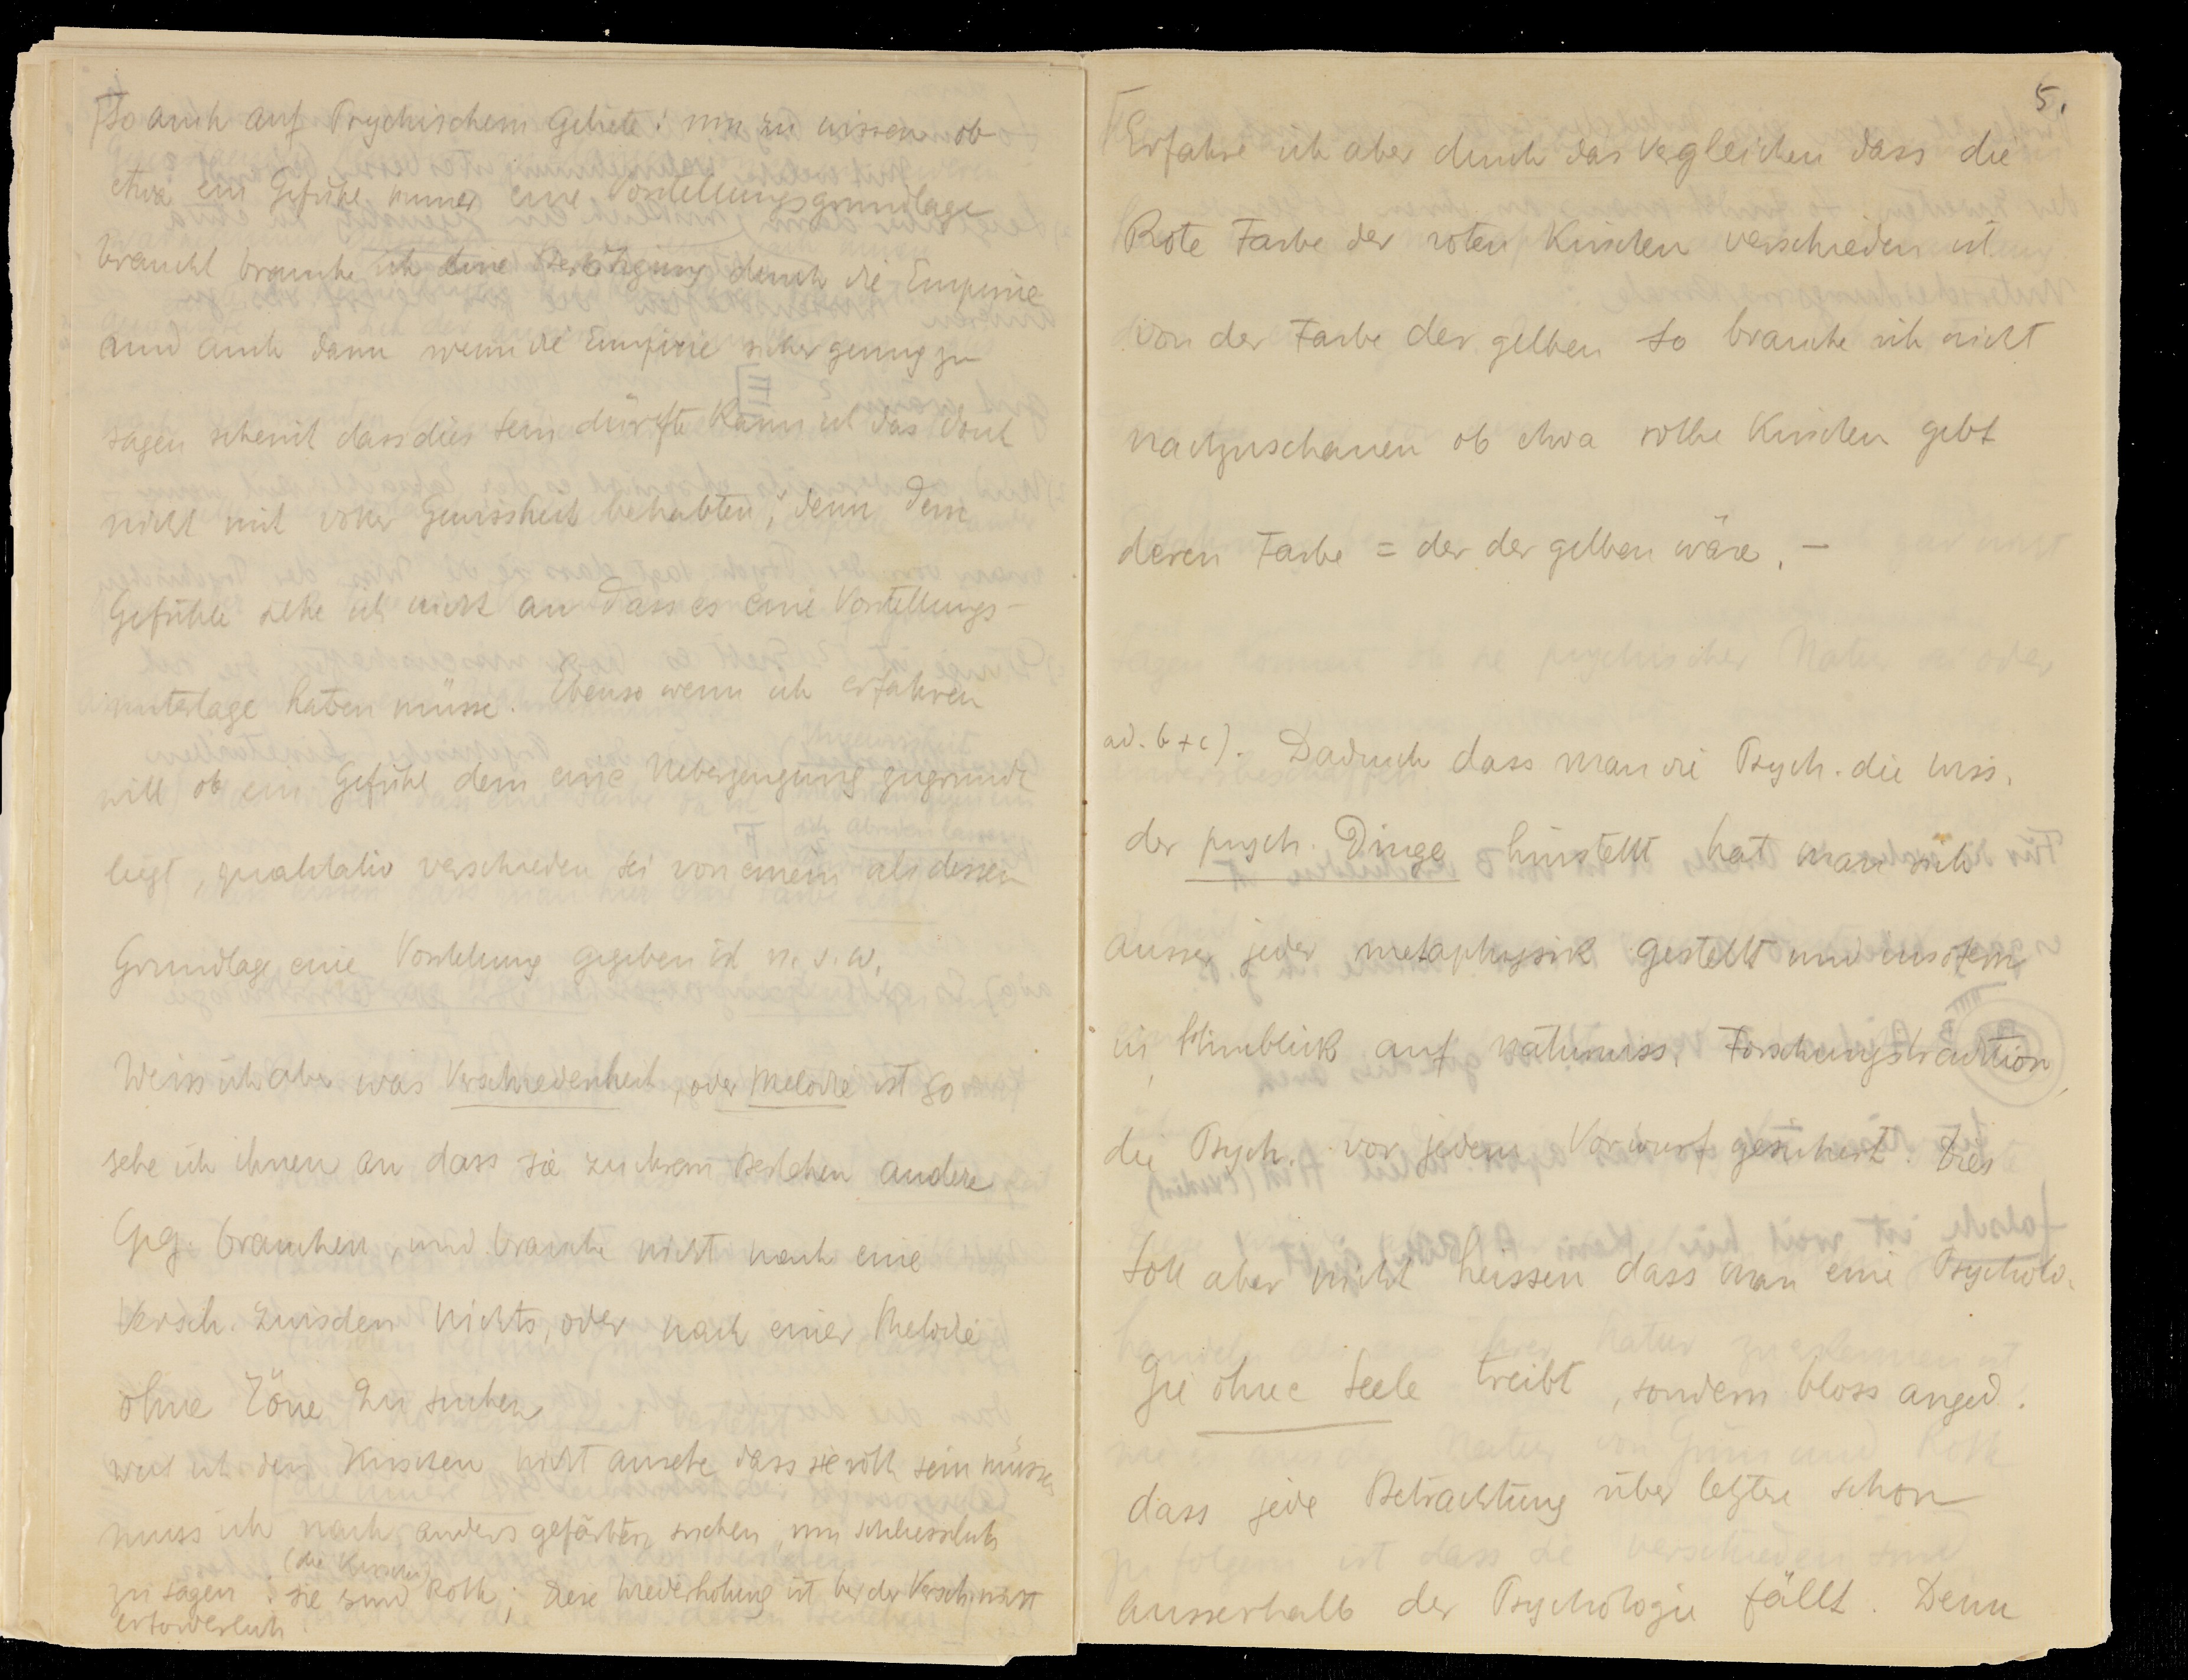 So auch auf Psychischem Gebiete: um zu wissen ob
etwa ein Gefühl immer eine Vorstellungsgrundlage
braucht brauche ich eine Bestätigung durch die Empirie
und auch dann wenn die Empirie sicher genug zu
sagen scheint dass dies sein dürfte kann ich das doch
nicht mit voller Gewissheit behaupten, denn dem
Gefühle sehe ich nicht an dass es eine Vorstellungs-
unterlage haben müsse. Ebenso wenn ich erfahren
will ob ein Gefühl dem eine Ueberzeugung zugrunde
liegt, qualitativ verschieden sei von einem als dessen
Grundlage eine Vorstellung gegeben ist u. s. w.
Weiss ich aber was Verschiedenheit, oder Melodie ist so
sehe ich ihnen an dass sie zu ihrem Bestehen andere
Gg. brauchen, und brauche nicht nach eine
Versch. zwischen Nichts, oder nach einer Melodie
ohne Töne zu suchen
weil ich den Kirschen nicht ansehe dass sie roth sein müssen
muss ich nach anders gefärbten suchen, um schliesslich
(die Kirschen)
zu sagen: sie sind Roth; diese Wiederholung ist bei der Versch. nicht
erforderlich.
5.
Erfahre ich aber durch das Vergleichen dass die
Rote Farbe der roten Kirschen verschieden ist
von der Farbe der gelben so brauche ich nicht
nachzuschauen ob etwa rothe Kirschen gebt
deren Farbe = der der gelben wäre. —
ad. b + c). Dadurch dass man die Psych. die wiss.
der psych. Dinge hinstellt hat man sich
ausser jeder metaphysik gestellt und insofern
in Hinblick auf naturwiss. Forschungstradition,
die Psych. vor jedem Vorwurf gesichert. Dies
soll aber nicht heissen dass man eine Psycholo-
gie ohne Seele treibt, sondern bloss anged.
dass jede Betrachtung über letztere schon
ausserhalb der Psychologie fällt. Denn